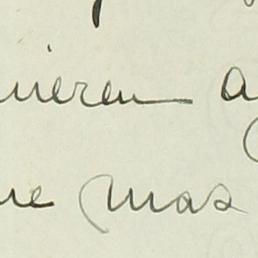 uieren a
ue mas